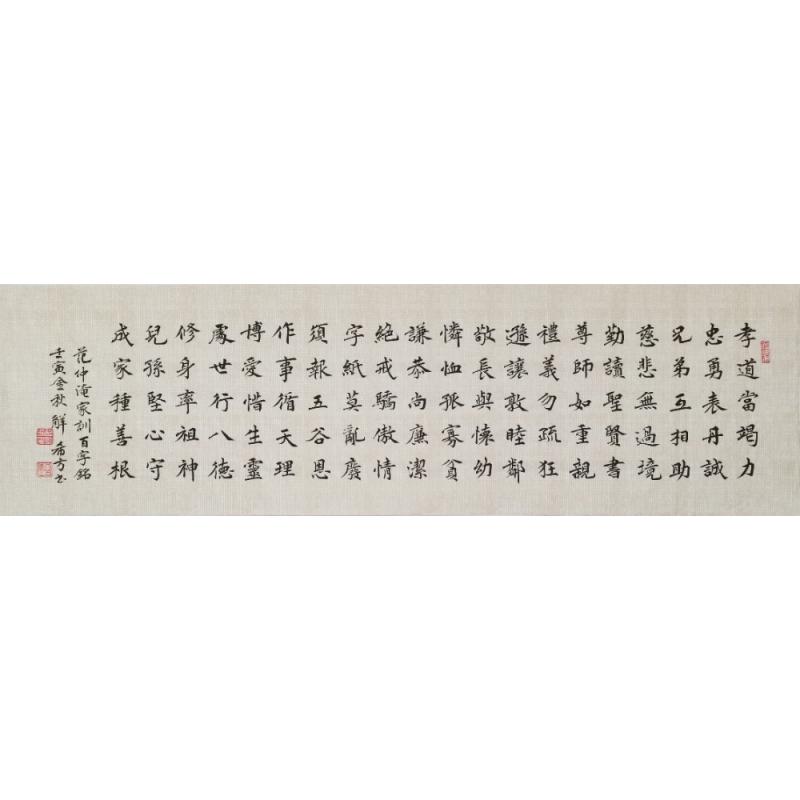 孝道當竭力
忠勇表丹誠
兄弟互相助
慈悲無過境
勤讀聖賢書
尊師如重親
禮義勿疏狂
遜讓敦睦鄰
敬長與懷幼
憐恤孤寡貧
謙恭尚廉潔
絕戒驕傲情
字紙莫亂廢
須報五谷恩
作事循天理
博愛惜生靈
處世行八德
修身率祖神
兒孫堅心守
成家種善根
范仲淹家訓百字銘
壬寅金秋 希方書